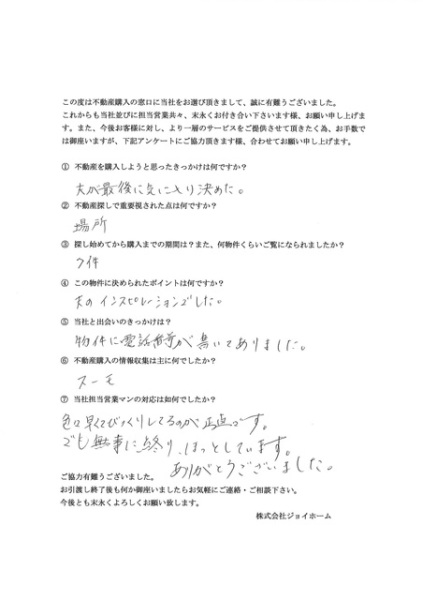 この度は不動産購入の窓口に当社をお選び頂きまして、誠に有難うございました。
これからも当社並びに担当営業共々、末永くお付き合い下さいます様、お願い申し上げま
す。また、今後お客様に対し、より一層のサービスをご提供させて頂きたく為、お手数で
は御座いますが、下記アンケートにご協力頂きます様、合わせてお願い申し上げます。
① 不動産を購入しようと思ったきっかけは何ですか?
夫が最後に気に入り決めた。
② 不動産探しで重要視された点は何ですか?
場所
③ 探し始めてから購入までの期間は?また、何物件くらいご覧になられましたか?
7件
④ この物件に決められたポイントは何ですか?
夫のインスピレーションでした。
⑤ 当社と出会いのきっかけは?
物件に電話番号が書いてありました。
⑥ 不動産購入の情報収集は主に何でしたか?
スーモ
⑦ 当社担当営業マンの対応は如何でしたか?
色々早くてびっくりしてるのが正直です。
でも無事に終り、ほっとしています。
ありがとうございました。
ご協力有難うございました。
お引渡し終了後も何か御座いましたらお気軽にご連絡・ご相談下さい。
今後とも末永くよろしくお願い致します。
株式会社ジョイホーム